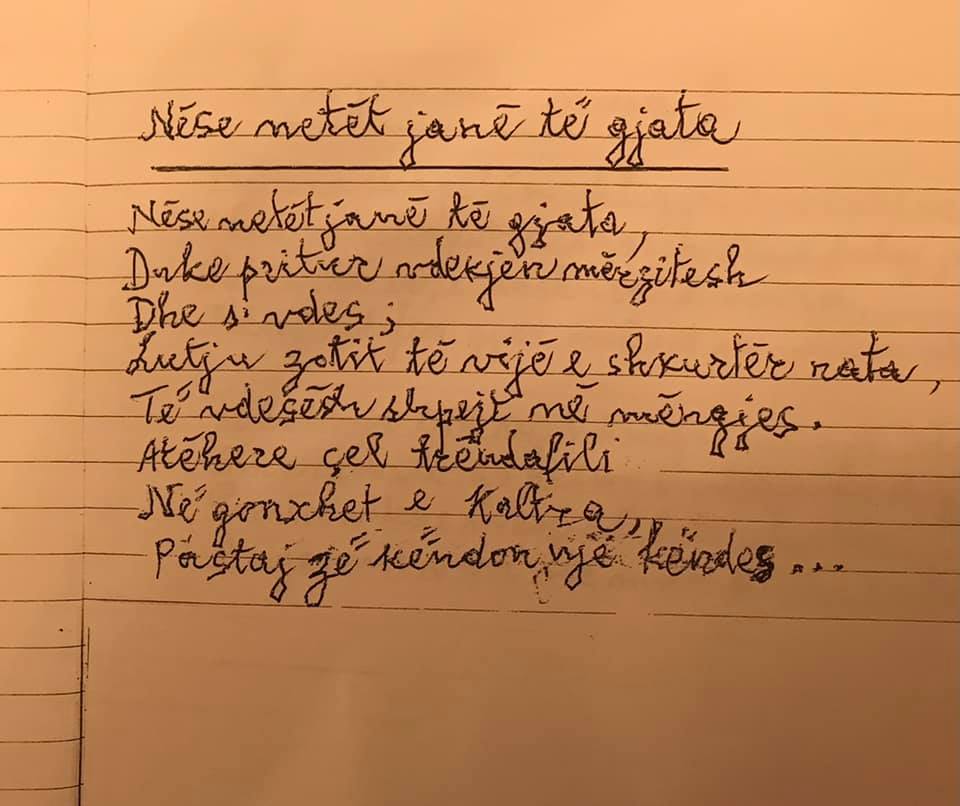 Nëse netët janë të gjata
Nëse netët janë të gjata,
Duke pritur vdekjen mërzitesh
Dhe s'vdes;
Lutju zotit të vijë e shkurtër nata,
Të vdesësh shpejt në mëngjes.
Atëhere çel trëndafili
Në gonxhet e kaltra,
Pastaj zë këndon një këndes...